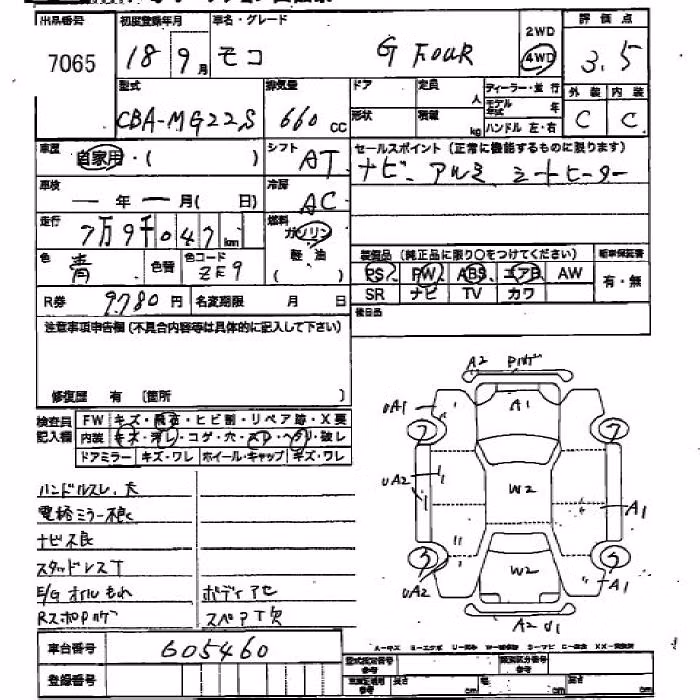 出品番号 初度登録年月 車名・グレード 2WD 評価点
7065 18 9月 モコ G FOUR 4WD 3.5
型式 排気量 ドア 定員 人 ディーラー・並行 外装 内装
CBA-MG22S 660cc 形状 積載 kg モデル年式 年 C C
ハンドル 左・右
車歴 自家用・( ) シフト AT セールスポイント(正常に機能するものに限ります)
ナビ アルミ シートヒーター
車検 ー年ー月(日) 冷房 AC
走行 7万9千047km 燃料 ガソリン
軽油
( )
色 青 色替 色コード ZE9 装備品(純正品に限り○をつけてください) 新車保証書
PS PW ABS エアB AW 有・無
R券 9780円 名変期限 月 日 SR ナビ TV カワ
注意事項申告欄(不具合内容等は具体的に記入して下さい) 後日品
修復歴 有 〔箇所 〕
検査員記入欄 FW キズ・飛石・ヒビ割・リペア跡・X要
内装 キズ・汚レ・コゲ・穴・スレ・ヘタリ・破レ
ドアミラー キズ・ワレ ホイール・キャップ キズ・ワレ
ハンドルスレ、大
電格ミラー不良
ナビ不良
スタッドレスT
E/G オイルもれ ボディアセ
スペアT欠
A2
A1 A1
7 7
UA2 W2 A1
3 3
UA2 W2 A1
A2 U1
車台番号 605460
登録番号
型式指定番号 類別区分番号
長さ cm 幅 cm 高さ cm